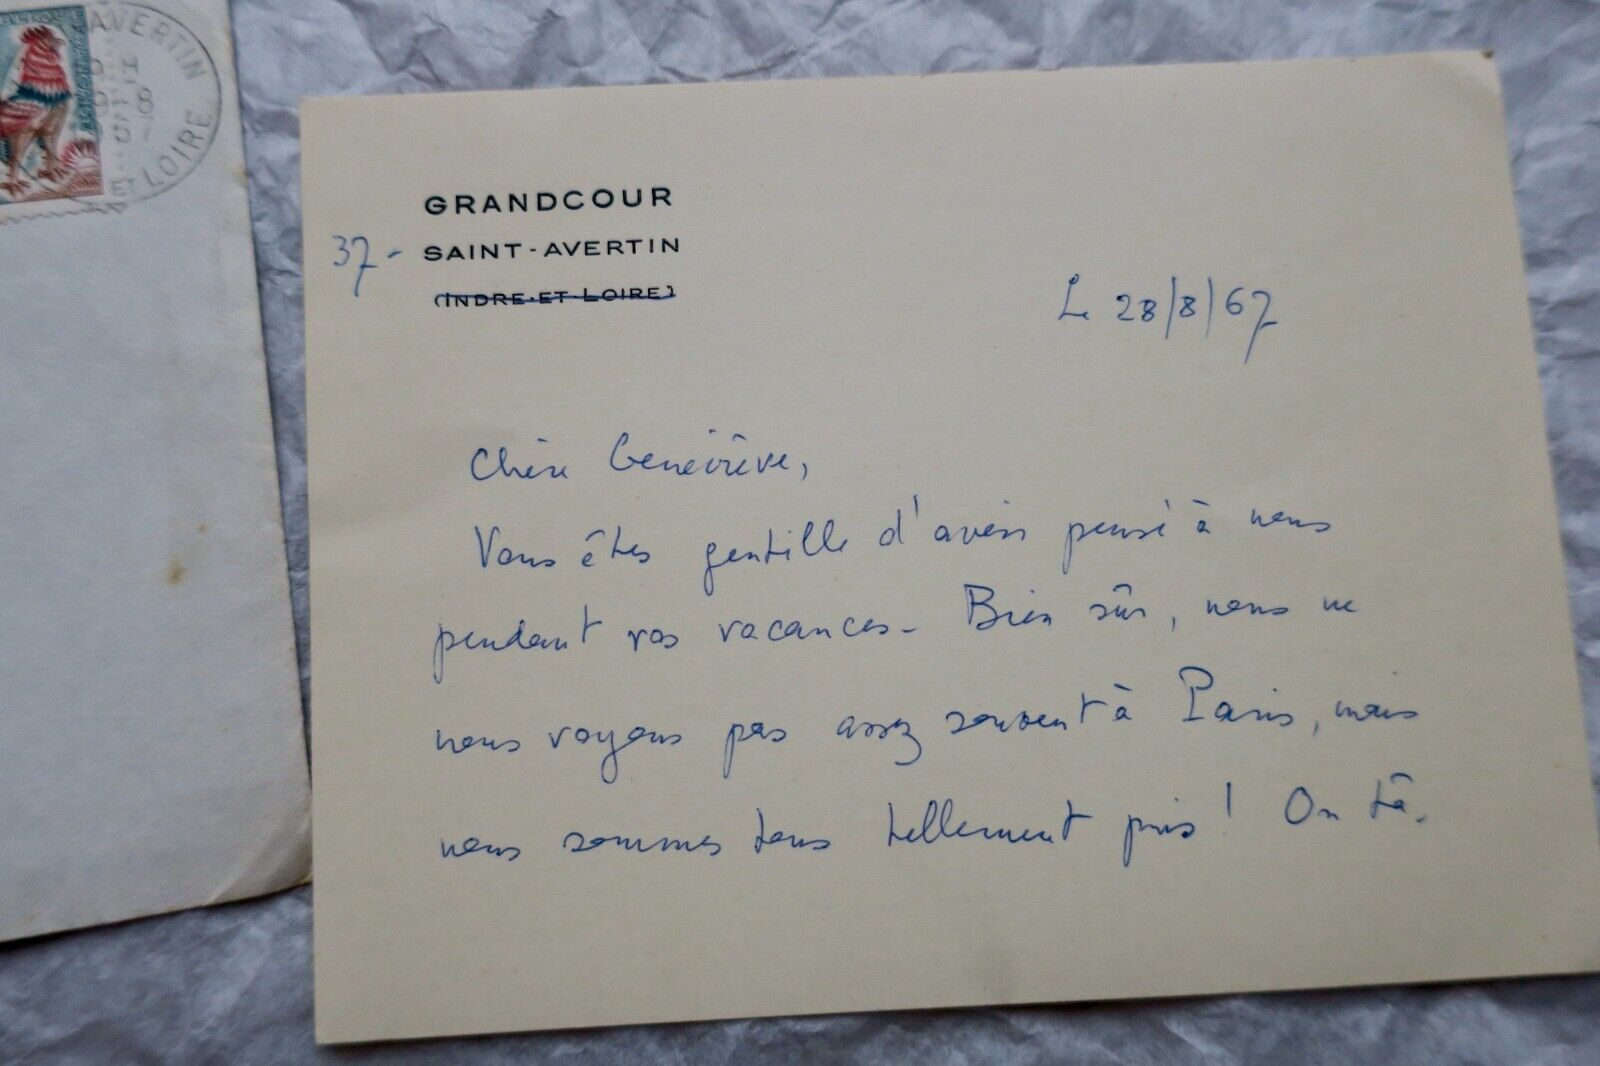 AVERTIN
ET LOIRE
GRANDCOUR
37- SAINT-AVERTIN
(INDRE-ET-LOIRE)
Le 28/8/67
Chère Geneviève,
Vous êtes gentille d'avoir pensé à nous
pendant vos vacances - Bien sûr, nous ne
nous voyons pas assez souvent à Paris, mais
nous sommes tous tellement pris! On tâ-